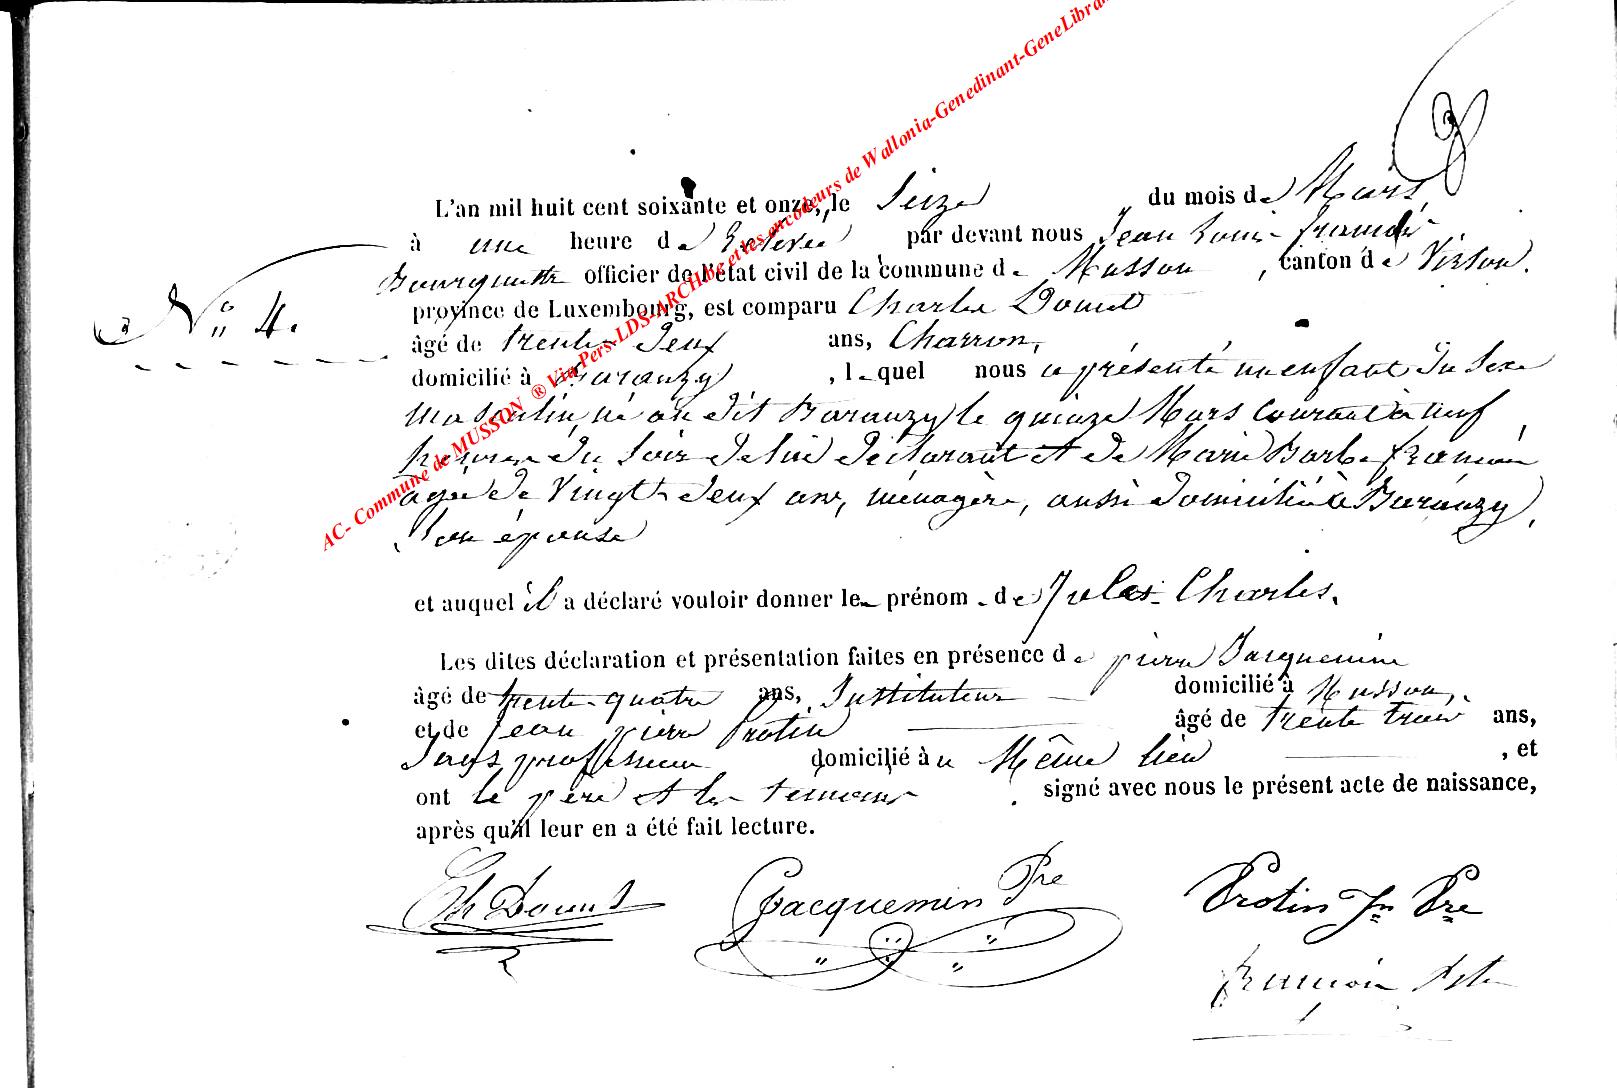 AC- Commune de MUSSON ® Via Pers-LDS-ARCH be et les encodeurs de Wallonia-Genedinant-GeneLibra
L'an mil huit cent soixante et onze, le Seize du mois de Mars,
à une heure de Relevée par devant nous Jean Louis
officier de l'état civil de la commune de Musson, canton de Virton.
N° 4.
province de Luxembourg, est comparu Charles
âgé de trente deux ans, Charron,
domicilié à Baranzy, lequel nous a présenté un enfant du sexe
masculin, né au dit Baranzy le quinze Mars courant à neuf
heures du soir de lui déclarant et de Marie Barbe
agée de vingt deux ans, ménagère, aussi domiciliée à Baranzy,
son épouse
et auquel il a déclaré vouloir donner le prénom de Jules Charles.
Les dites déclaration et présentation faites en présence de pierre Jacquemin
âgé de trente-quatre ans, Instituteur domicilié à Musson,
et de Jean pierre Protin âgé de trente trois ans,
sans profession domicilié à u Même lieu, et
ont le père et les témoins signé avec nous le présent acte de naissance,
après qu'il leur en a été fait lecture.
Ch Jacquemin Pre Protin Jn Pre